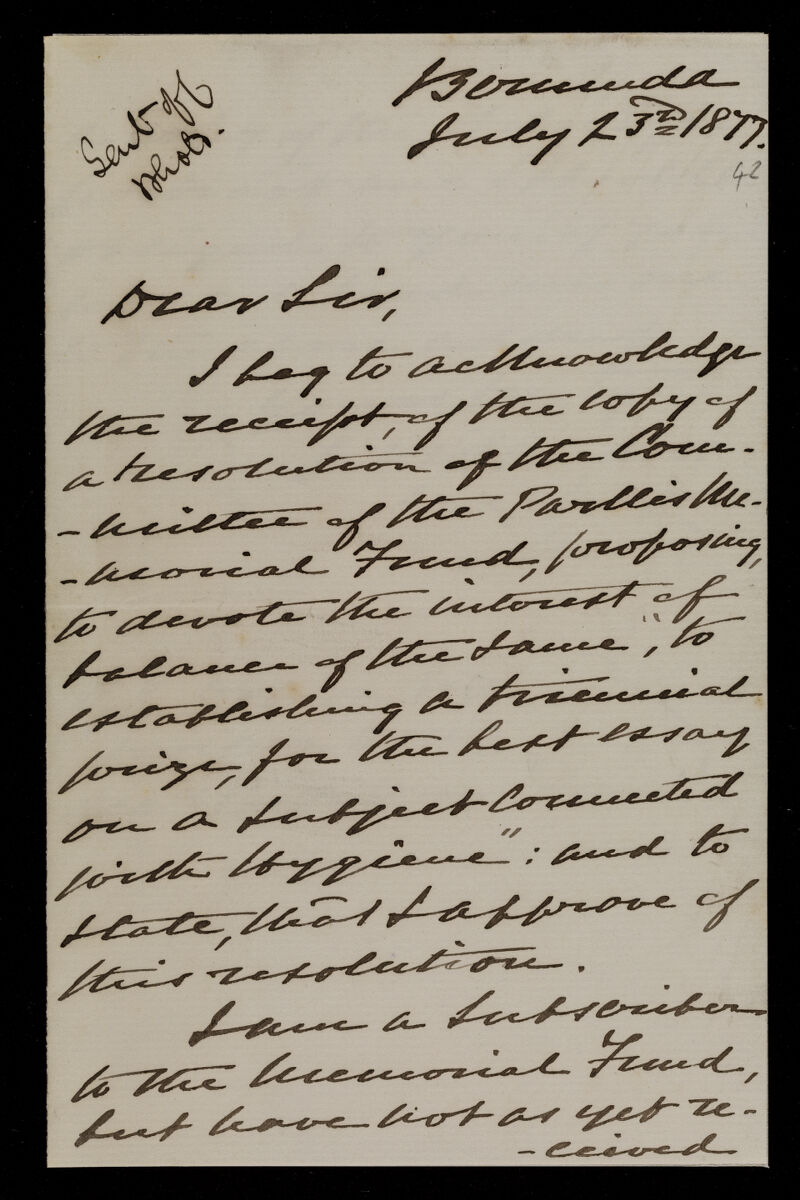 Sent off
Photo.
Bermuda
July 23rd 1877.
42
Dear Sir,
I beg to acknowledge
the receipt, of the copy of
a resolution of the Com-
-mittee of the Parkes Me-
-morial Fund, proposing,
to devote the interest of
balance of the same", to
establishing a triennial
prize, for the best essay
on a subject connected
with Hygiene": and to
state, that I approve of
this resolution.
I am a subscriber
to the Memorial Fund,
but have not as yet re-
-ceived